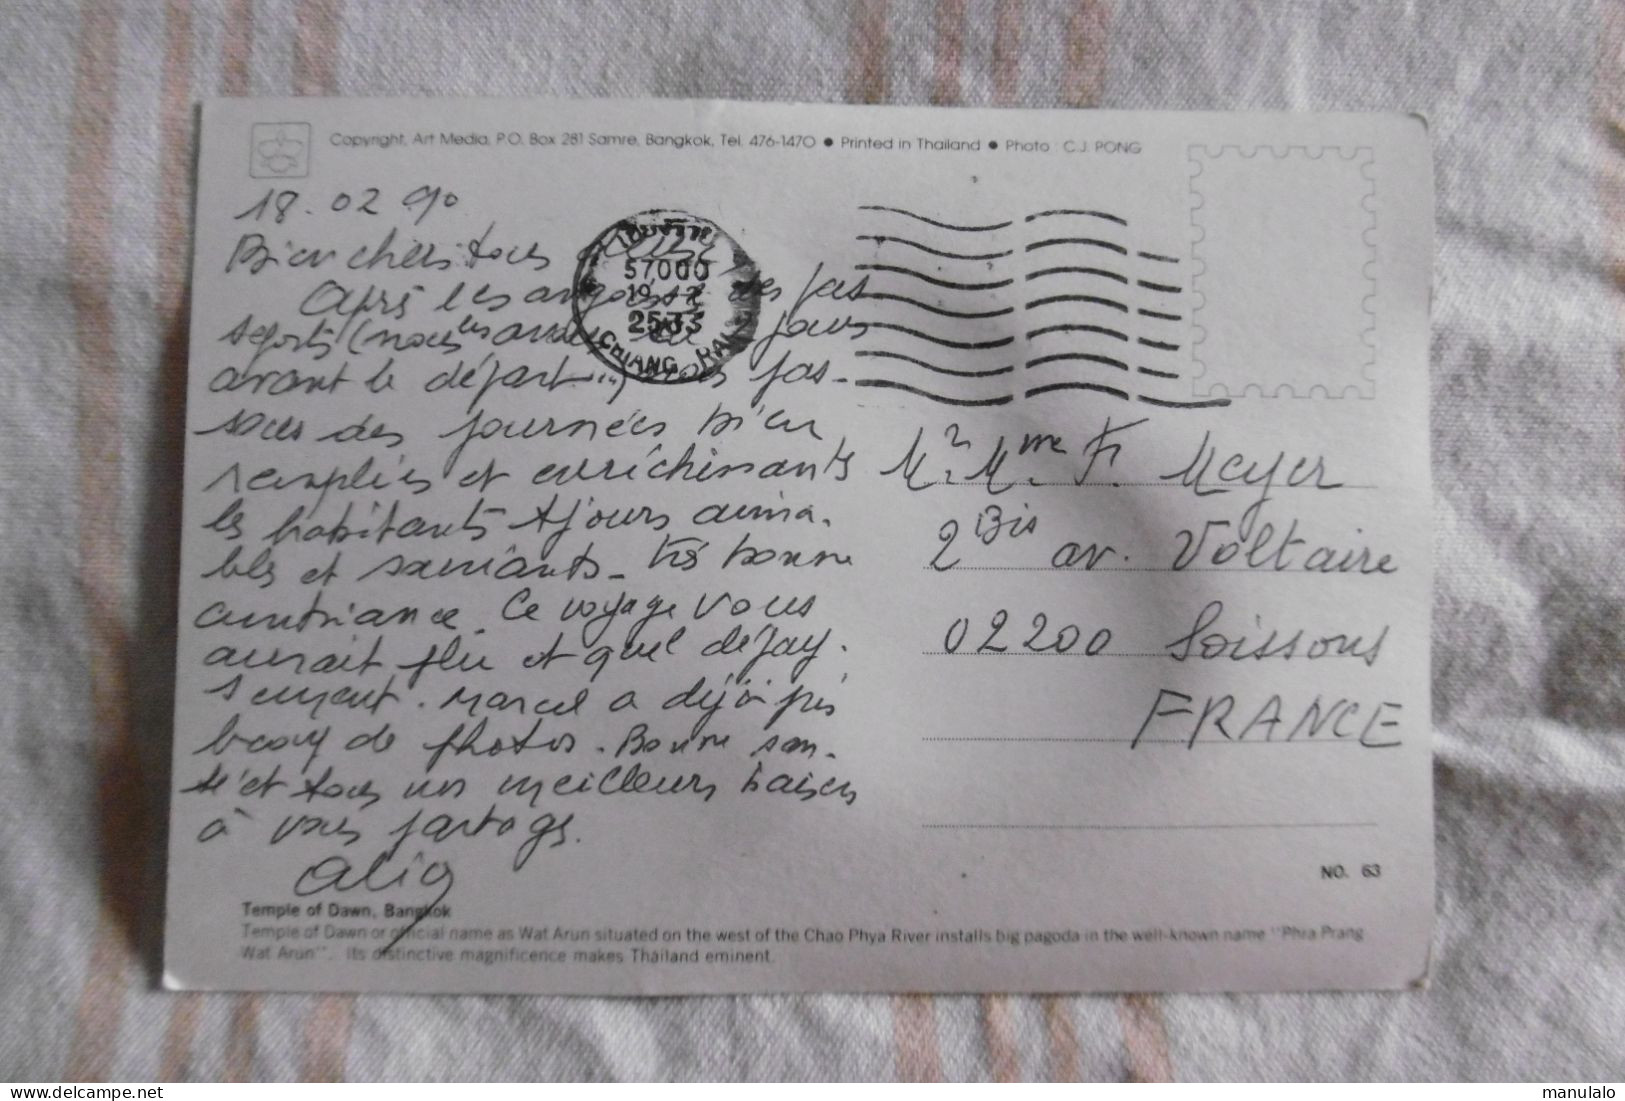 Copyright, Art Media, P.O. Box 281 Samre, Bangkok, Tel. 476-1470 ● Printed in Thailand ● Photo : C.J. PONG
18.02 90
Bien chers tous
Après les angoisses des pas
seports (nous les avons eu 2 jours
avant le départ !!!) nous pas-
sons des journées bien
remplies et enrichissants
les habitants tjours aima-
bles et souriants - très bonne
ambiance. Ce voyage vous
aurait plu et quel dépay-
sement. Marcel a déjà pris
bcoup de photos. Bonne san-
té et tous nos meilleurs baisers
à vous partager.
เชียงราย
57000
19 2
2533
CHIANG RAI
Mr. Mme. F. Meyer
2 Bis av. Voltaire
02200 Soissons
FRANCE
NO. 63
Temple of Dawn, Bangkok
Temple of Dawn or official name as Wat Arun situated on the west of the Chao Phya River installs big pagoda in the well-known name "Phra Prang
Wat Arun". Its distinctive magnificence makes Thailand eminent.
manulalo